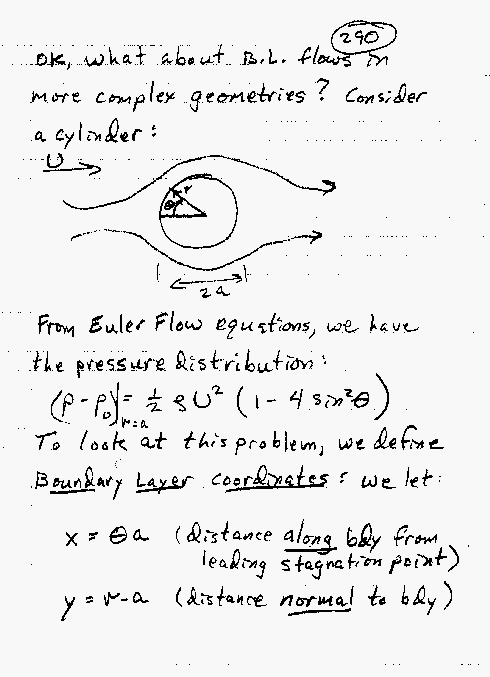 290
OK, what about B.L. flows in
more complex geometries? Consider
a cylinder:
U
θ r
2a
From Euler Flow equations, we have
the pressure distribution:
(p - p₀)|r=a = ½ ρU² (1 - 4 sin²θ)
To look at this problem, we define
Boundary Layer coordinates: we let:
x = θa (distance along bdy from
leading stagnation point)
y = r-a (distance normal to bdy)